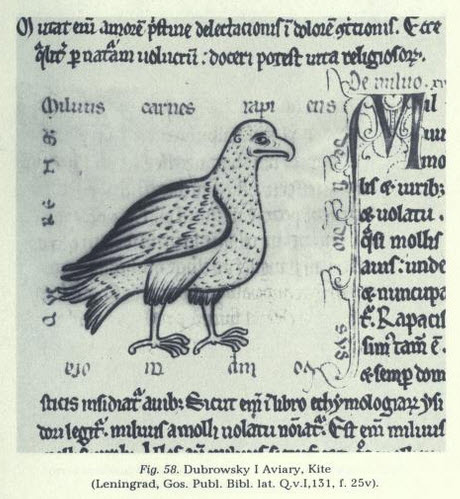 Mutat em̄ amorē p̄stine delectacionis ī dolorē ꝯtricionis. Ecce
qͣlit̄ p natām uolucrū : doceri potest uita religiosoꝝ.
De miluo. xv
Miluus carnes rapi ens
Mil
uus
mo
lis & uiribꝫ
& uolatu.
qͣsi mollis
auis: unde
& nuncupa
t̄. Rapacis
simꝰ tam̄ ē.
& semp dom
sticis insidiat̄ auibꝫ Sicut em̄ ī libro ethymologiaꝝ ysi
dori legit̄. miluus a molli uolatu noīat̄. Est em̄ miluus
Fig. 58. Dubrowsky I Aviary, Kite
(Leningrad, Gos. Publ. Bibl. lat. Q.v.I,131, f. 25v).